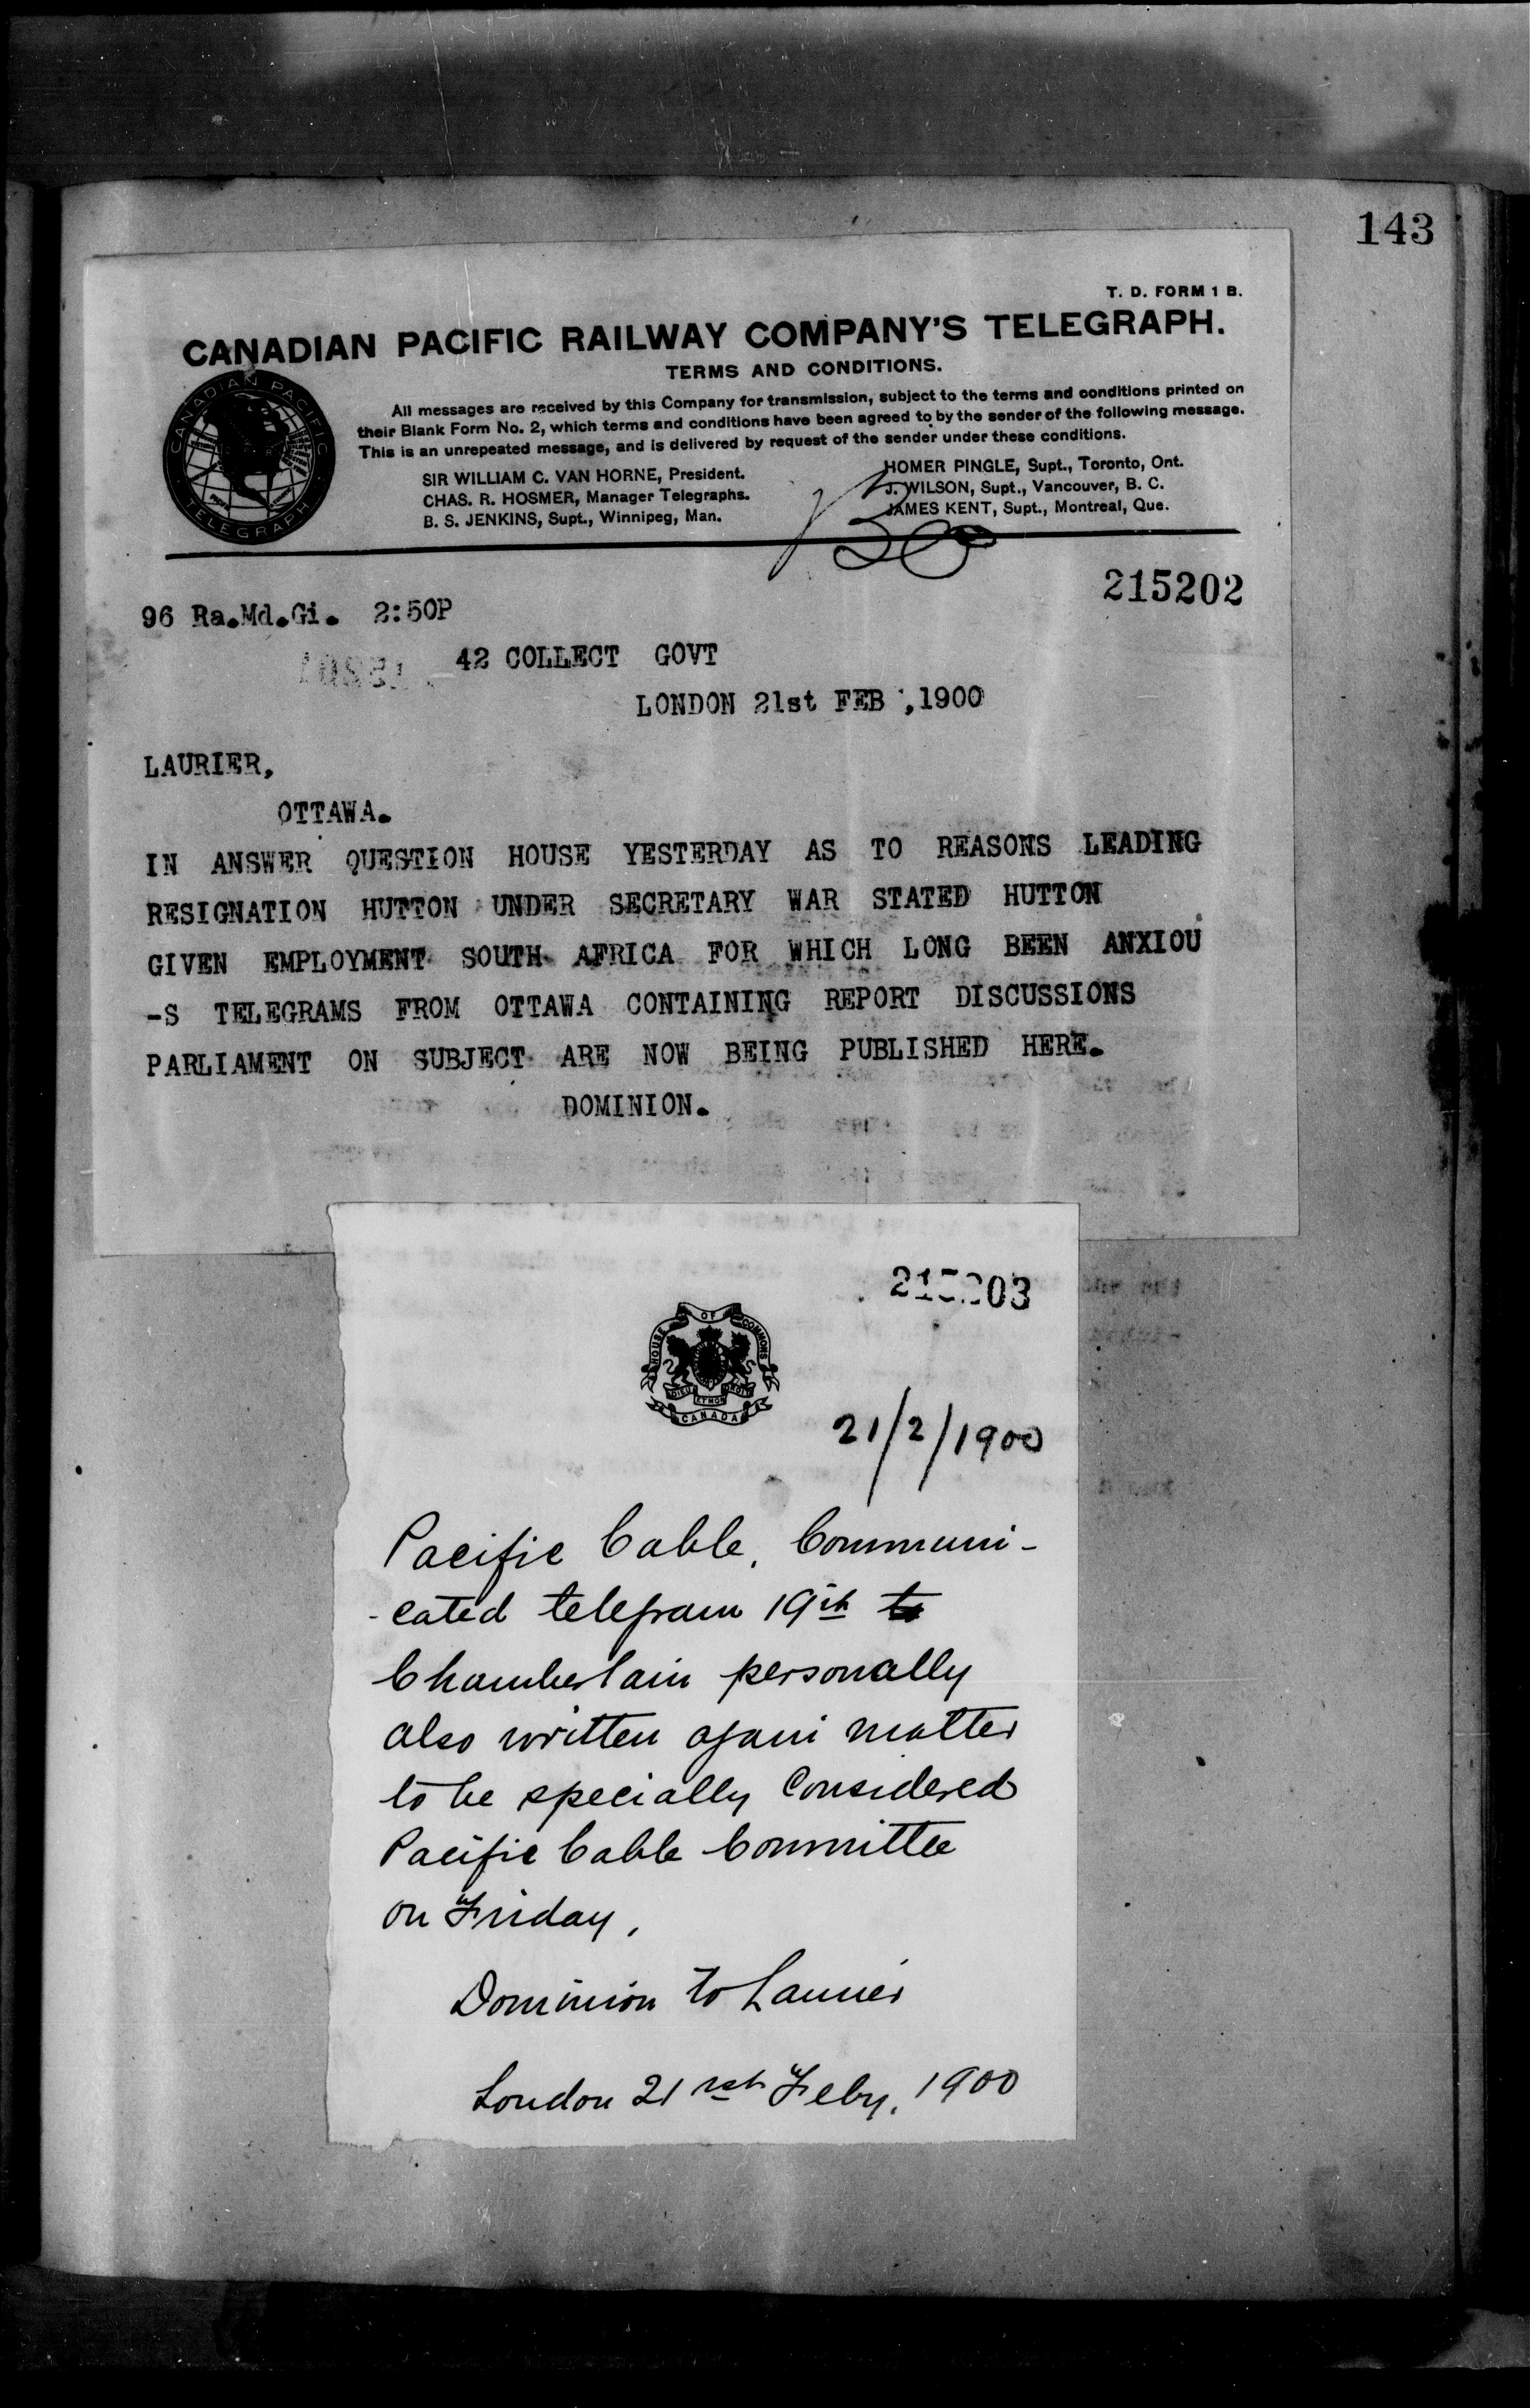 143
T. D. FORM 1 B.
CANADIAN PACIFIC RAILWAY COMPANY'S TELEGRAPH.
TERMS AND CONDITIONS.
All messages are received by this Company for transmission, subject to the terms and conditions printed on
their Blank Form No. 2, which terms and conditions have been agreed to by the sender of the following message.
This is an unrepeated message, and is delivered by request of the sender under these conditions.
SIR WILLIAM C. VAN HORNE, President.
CHAS. R. HOSMER, Manager Telegraphs.
B. S. JENKINS, Supt., Winnipeg, Man.
HOMER PINGLE, Supt., Toronto, Ont.
J. WILSON, Supt., Vancouver, B. C.
JAMES KENT, Supt., Montreal, Que.
CANADIAN PACIFIC
TELEGRAPH
215202
96 Ra.Md.Gi. 2:50P
42 COLLECT GOVT
LONDON 21st FEB ,1900
LAURIER,
OTTAWA.
IN ANSWER QUESTION HOUSE YESTERDAY AS TO REASONS LEADING
RESIGNATION HUTTON UNDER SECRETARY WAR STATED HUTTON
GIVEN EMPLOYMENT SOUTH AFRICA FOR WHICH LONG BEEN ANXIOU
-S TELEGRAMS FROM OTTAWA CONTAINING REPORT DISCUSSIONS
PARLIAMENT ON SUBJECT ARE NOW BEING PUBLISHED HERE.
DOMINION.
215203
HOUSE OF COMMONS
DIEU ET MON DROIT
CANADA
21/2/1900
Pacific Cable, Communi-
-cated telegram 19th to
Chamberlain personally
also written again matter
to be specially Considered
Pacific Cable Committee
on Friday,
Dominion to Laurier
London 21rst Feby, 1900